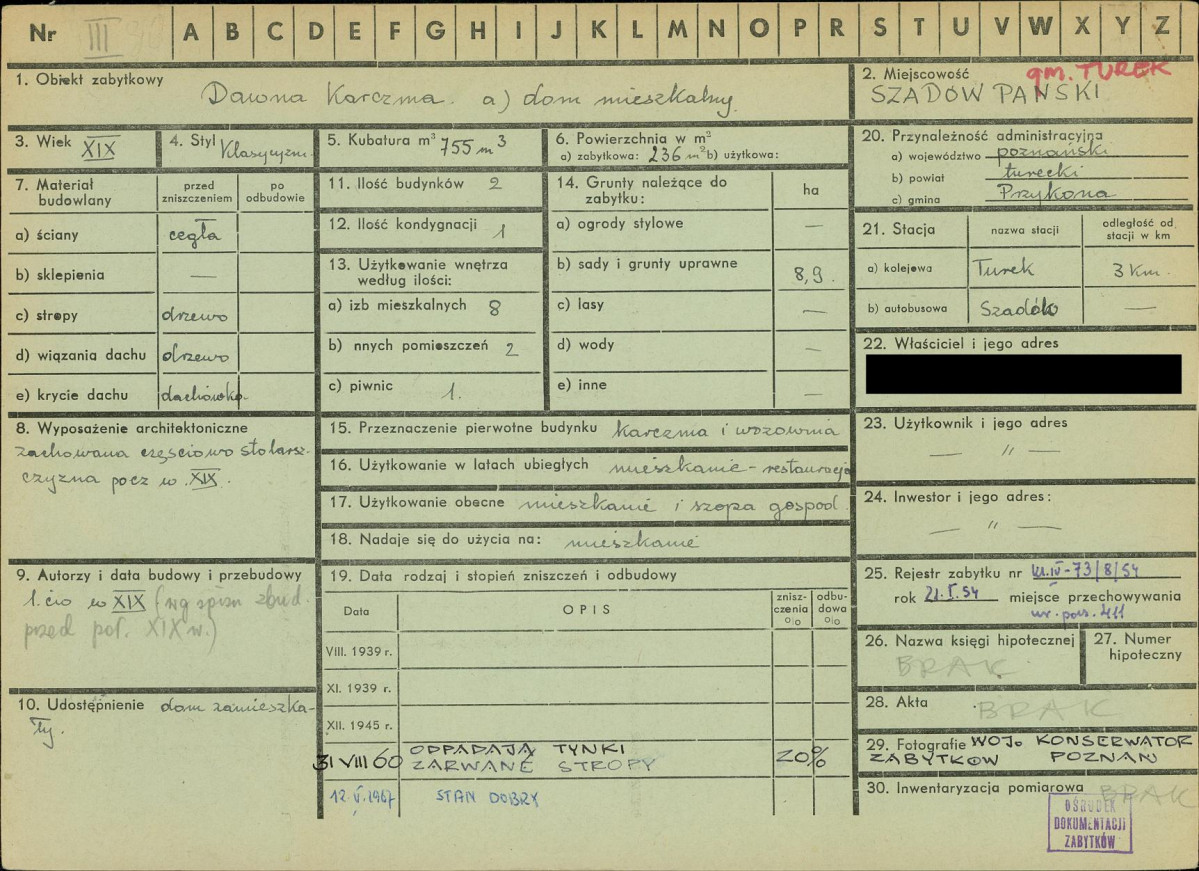 Nr III A B C D E F G H I J K L M N O P R S T U V W X Y Z
1. Obiekt zabytkowy
Dawna Karczma. a) dom mieszkalny.
2. Miejscowość gm. TUREK
SZADÓW PAŃSKI
3. Wiek XIX
4. Styl Klasycyzm.
5. Kubatura m³ 755 m³
6. Powierzchnia w m²
a) zabytkowa: 236 m² b) użytkowa:
7. Materiał budowlany
przed zniszczeniem
po odbudowie
a) ściany cegła
b) sklepienia —
c) stropy drzewo
d) wiązania dachu drzewo
e) krycie dachu dachówka.
8. Wyposażenie architektoniczne
zachowana częściowo stolarsz-
czyzna pocz w. XIX.
9. Autorzy i data budowy i przebudowy
1. ćw w XIX (wg spisu zbud.
przed poł. XIX w.)
10. Udostępnienie dom zamieszka-
ły.
11. Ilość budynków 2
12. Ilość kondygnacji 1
13. Użytkowanie wnętrza
według ilości:
a) izb mieszkalnych 8
b) nnych pomieszczeń 2
c) piwnic 1.
14. Grunty należące do
zabytku:
ha
a) ogrody stylowe —
b) sady i grunty uprawne 8,9.
c) lasy —
d) wody —
e) inne —
15. Przeznaczenie pierwotne budynku karczma i wozownia
16. Użytkowanie w latach ubiegłych mieszkanie - restauracja
17. Użytkowanie obecne mieszkanie i szopa gospod.
18. Nadaje się do użycia na: mieszkanie
19. Data rodzaj i stopień zniszczeń i odbudowy
Data
OPIS
znisz-
czenia
o/o
odbu-
dowa
o/o
VIII. 1939 r.
XI. 1939 r.
XII. 1945 r.
31 VIII 60 ODPADAJĄ TYNKI
ZARWANE STROPY 20%
12. V. 1967 STAN DOBRY
20. Przynależność administracyjna
a) województwo poznański
b) powiat turecki
c) gmina Przykona
21. Stacja
nazwa stacji
odległość od
stacji w km
a) kolejowa Turek 3 km.
b) autobusowa Szadów —
22. Właściciel i jego adres
23. Użytkownik i jego adres
— " —
24. Inwestor i jego adres:
— " —
25. Rejestr zabytku nr kl.IV-73/8/54
rok 21.I.54 miejsce przechowywania
nr. poz. 411
26. Nazwa księgi hipotecznej
BRAK
27. Numer
hipoteczny
28. Akta BRAK
29. Fotografie WOJ. KONSERWATOR
ZABYTKÓW POZNAŃ
30. Inwentaryzacja pomiarowa BRAK
OŚRODEK
DOKUMENTACJI
ZABYTKÓW